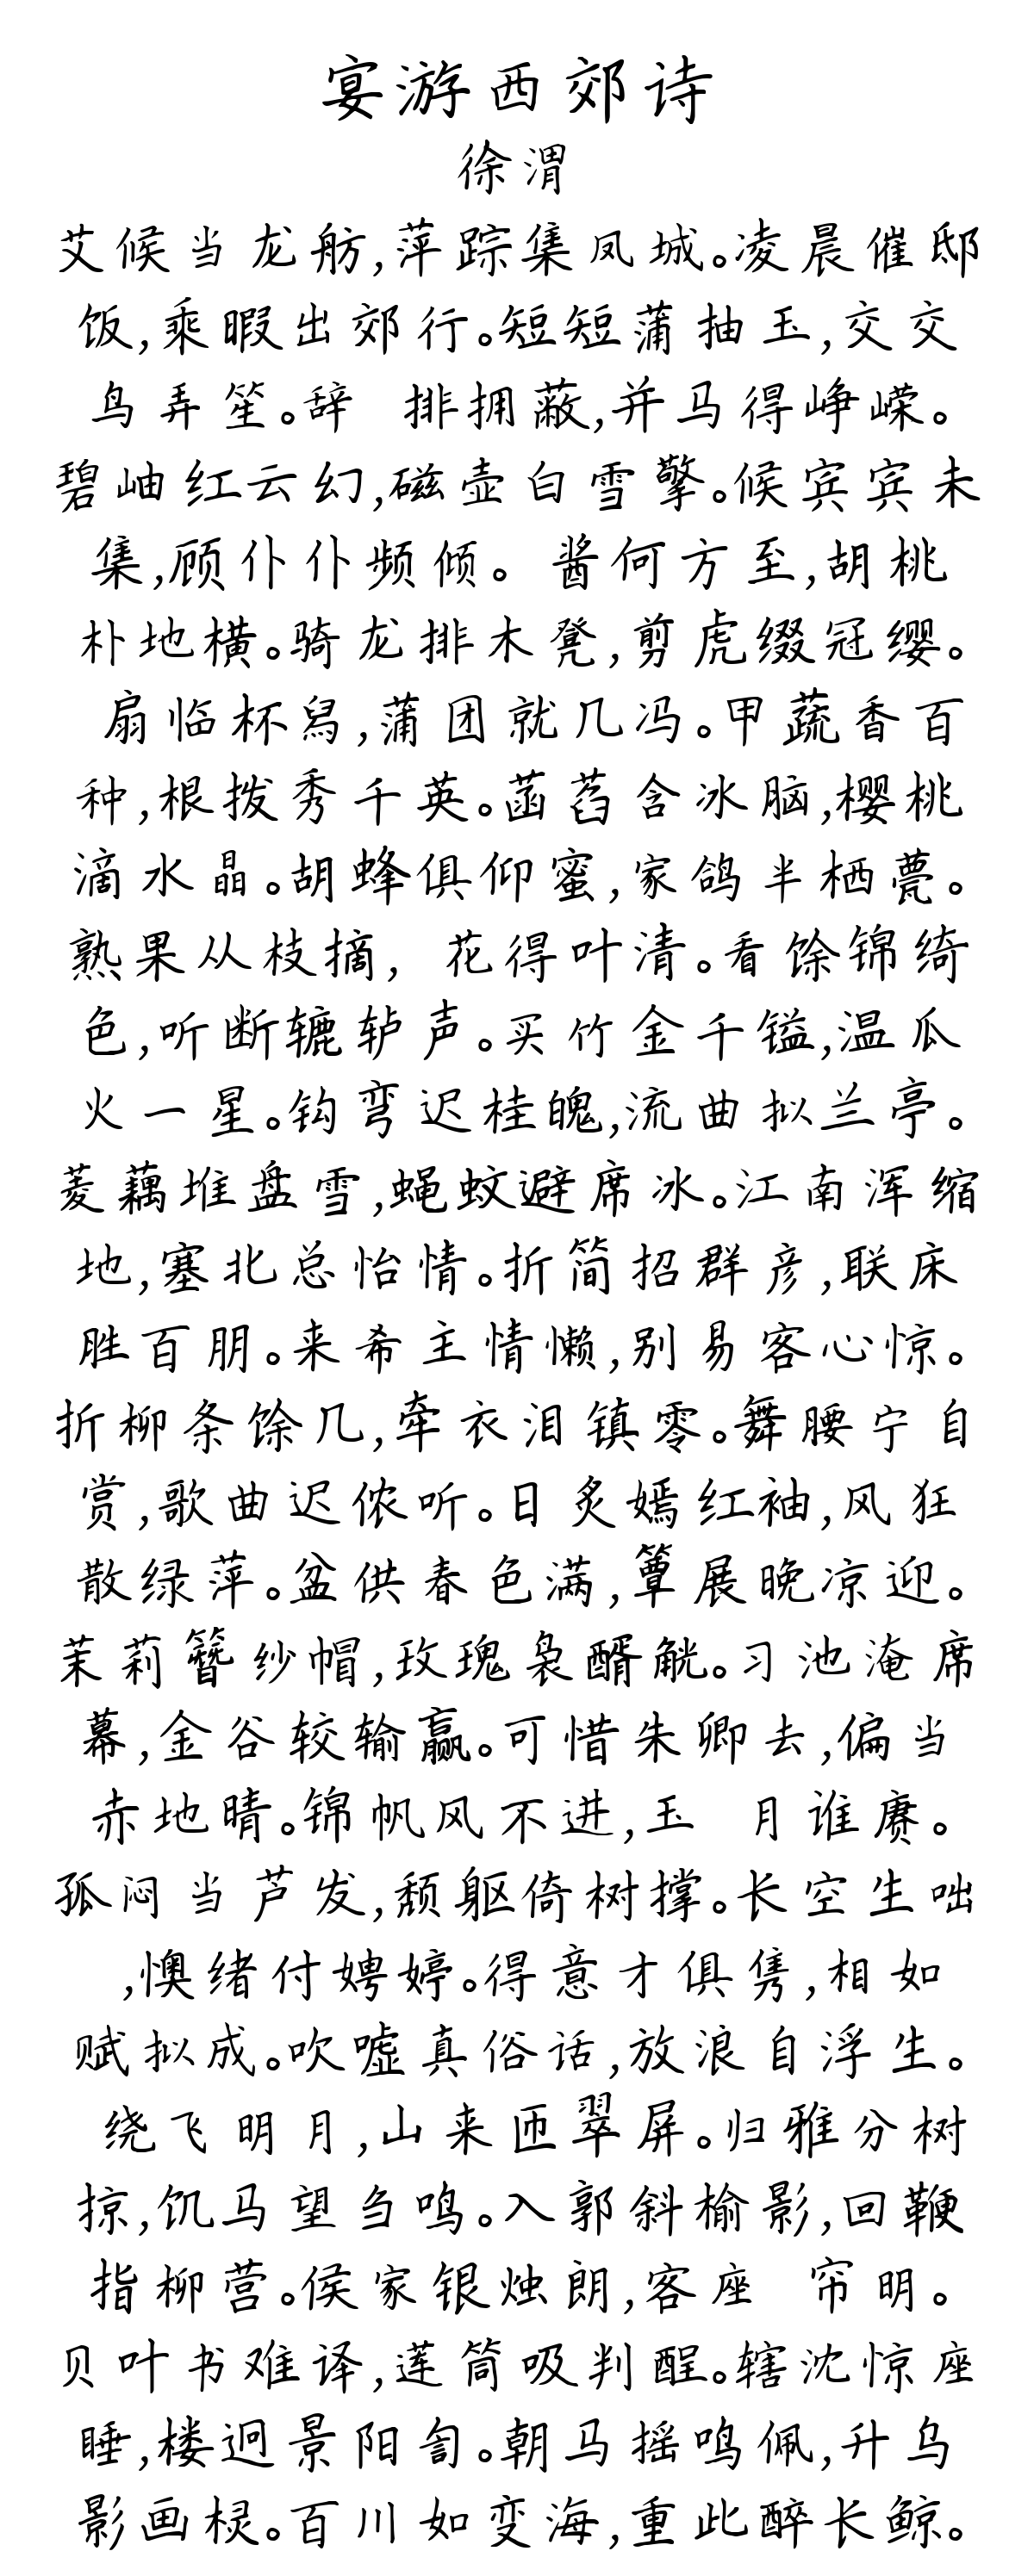 宴游西郊诗
徐渭
艾候当龙舫,萍踪集凤城。凌晨催邸
饭,乘暇出郊行。短短蒲抽玉,交交
鸟弄笙。辞 排拥蔽,并马得峥嵘。
碧岫红云幻,磁壶白雪擎。候宾宾未
集,顾仆仆频倾。 酱何方至,胡桃
朴地横。骑龙排木凳,剪虎缀冠缨。
扇临杯舄,蒲团就几冯。甲蔬香百
种,根拨秀千英。菡萏含冰脑,樱桃
滴水晶。胡蜂俱仰蜜,家鸽半栖甍。
熟果从枝摘, 花得叶清。看馀锦绮
色,听断辘轳声。买竹金千镒,温瓜
火一星。钩弯迟桂魄,流曲拟兰亭。
菱藕堆盘雪,蝇蚊避席冰。江南浑缩
地,塞北总怡情。折简招群彦,联床
胜百朋。来希主情懒,别易客心惊。
折柳条馀几,牵衣泪镇零。舞腰宁自
赏,歌曲迟侬听。日炙嫣红袖,风狂
散绿萍。盆供春色满,簟展晚凉迎。
茉莉簪纱帽,玫瑰袅醑觥。习池淹席
幕,金谷较输赢。可惜朱卿去,偏当
赤地晴。锦帆风不进,玉 月谁赓。
孤闷当芦发,颓躯倚树撑。长空生咄
,懊绪付娉婷。得意才俱隽,相如
赋拟成。吹嘘真俗话,放浪自浮生。
绕飞明月,山来匝翠屏。归雅分树
掠,饥马望刍鸣。入郭斜榆影,回鞭
指柳营。侯家银烛朗,客座 帘明。
贝叶书难译,莲筒吸判酲。辖沈惊座
睡,楼迥景阳訇。朝马摇鸣佩,升乌
影画棂。百川如变海,重此醉长鲸。